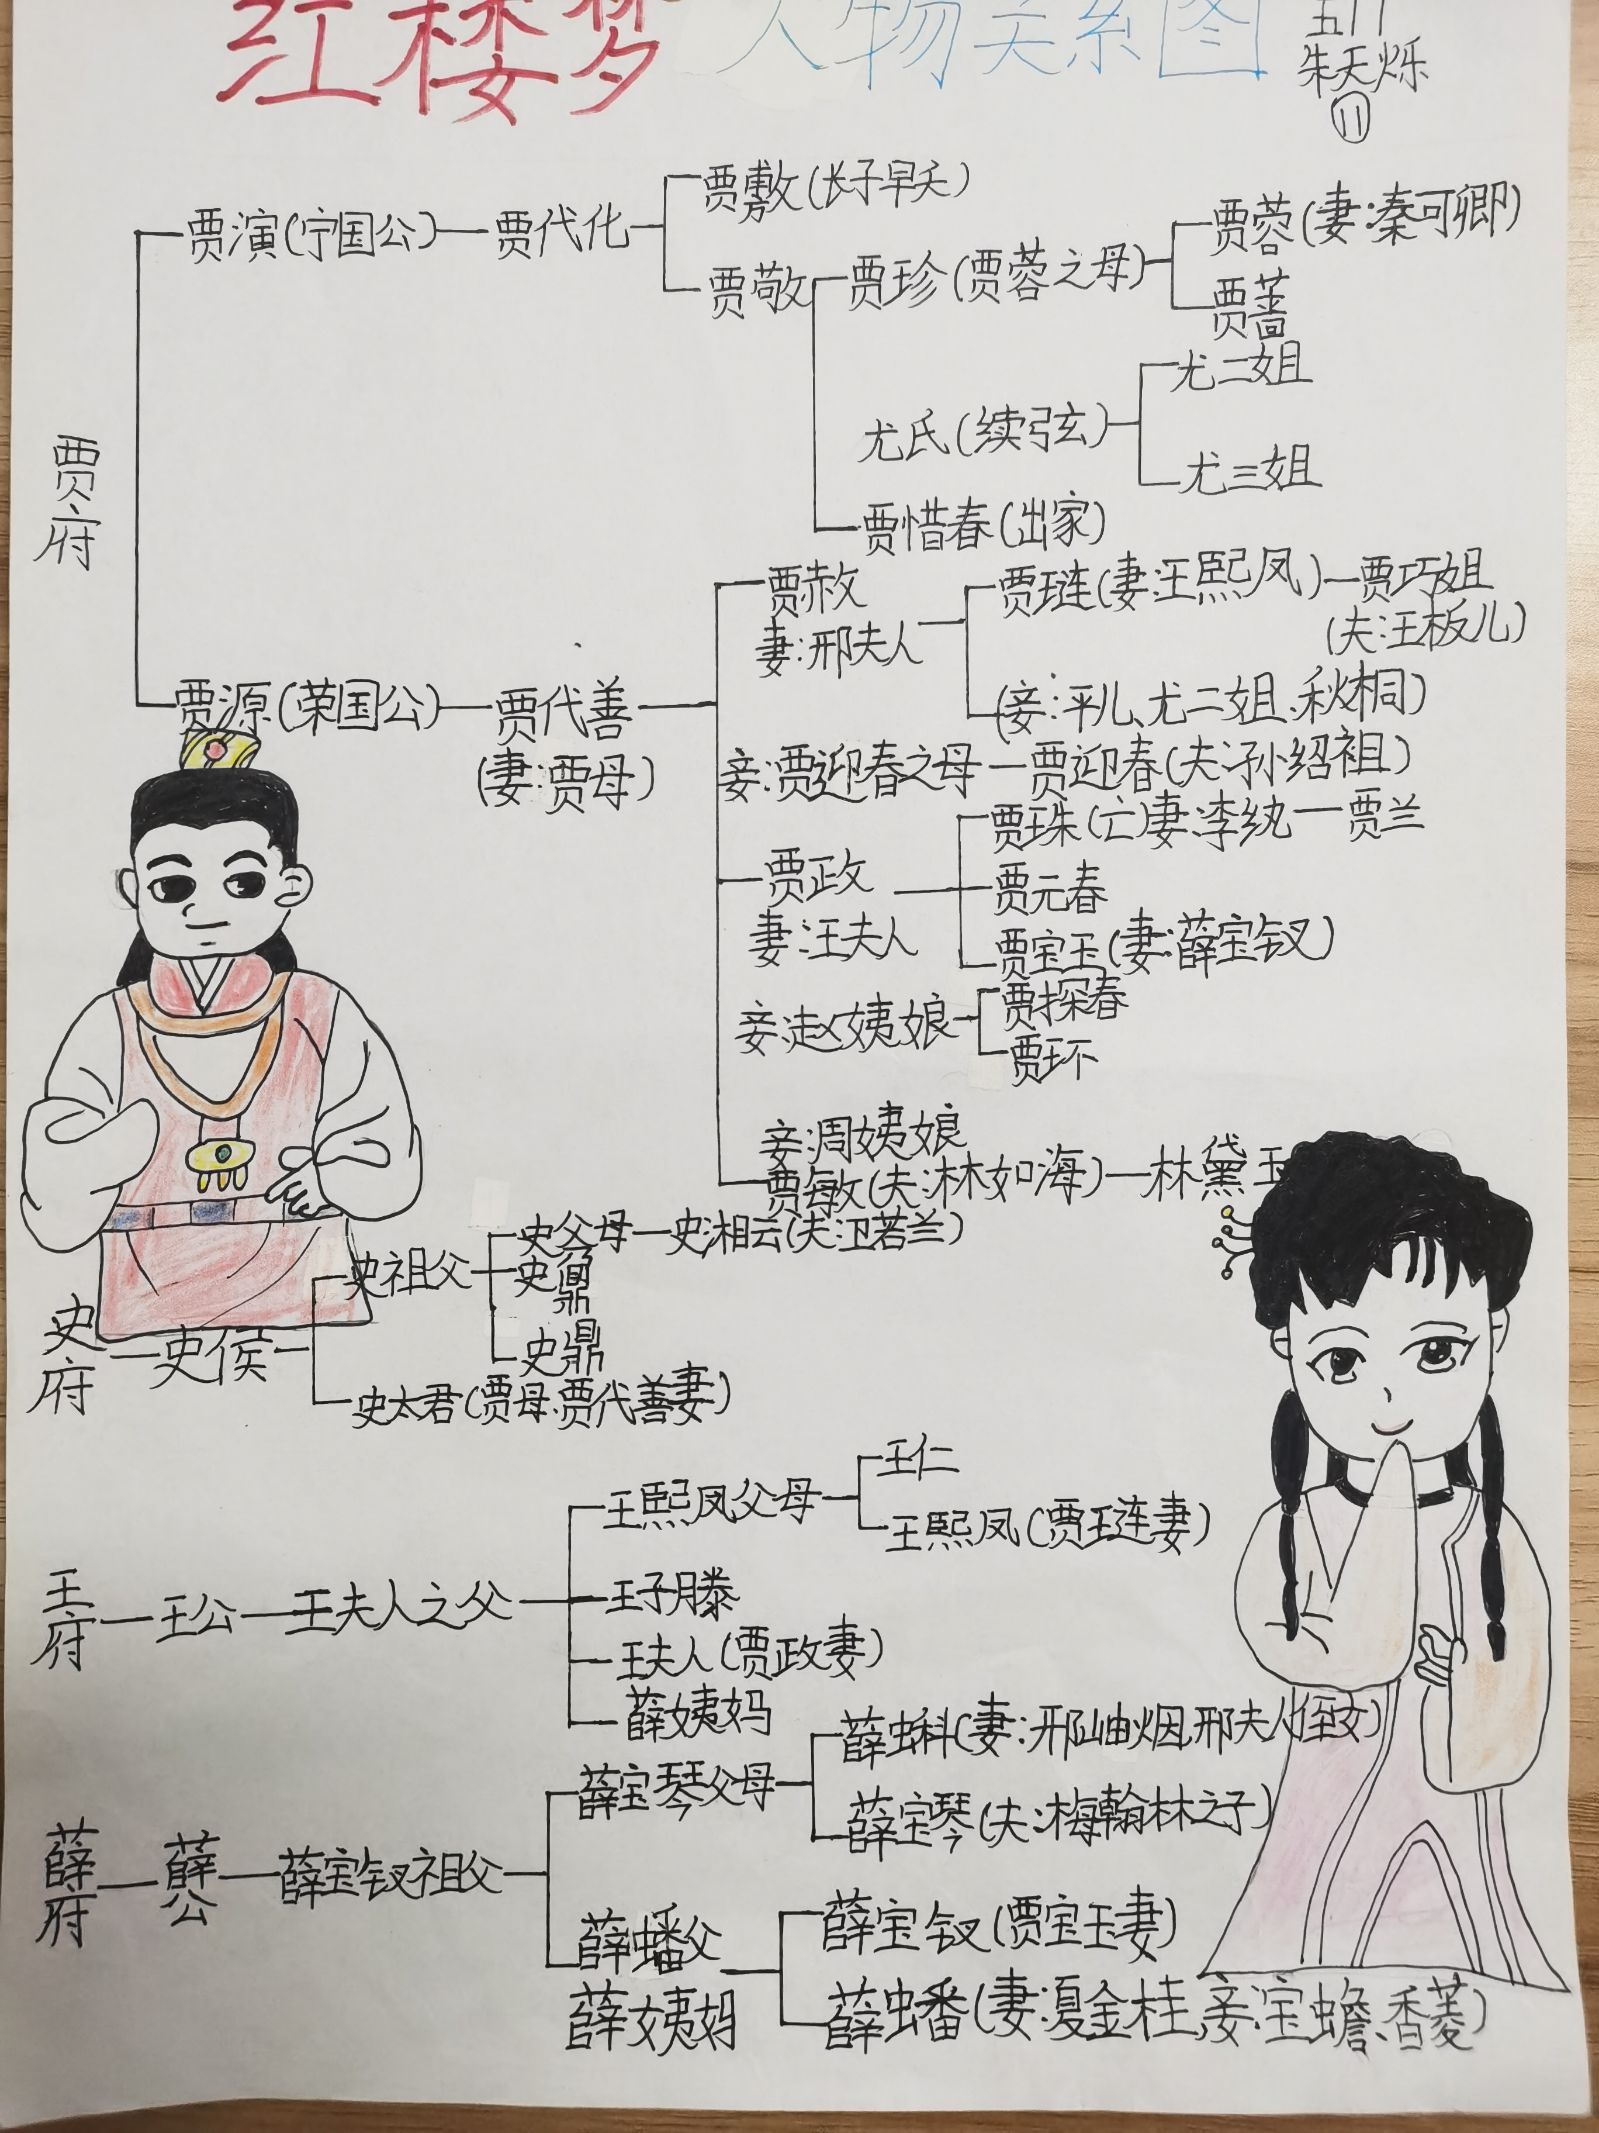 红楼梦 人物关系图
朱天烁
11
贾府
贾演(宁国公) 贾代化
贾敷(长子早夭)
贾敬 贾珍(贾蓉之母)
贾蓉(妻:秦可卿)
贾蔷
尤氏(续弦)
尤二姐
尤三姐
贾惜春(出家)
贾源(荣国公) 贾代善
(妻:贾母)
贾赦
妻:邢夫人
贾琏(妻:王熙凤) 贾巧姐
(夫:王板儿)
(妾:平儿、尤二姐、秋桐)
妾:贾迎春之母 贾迎春(夫:孙绍祖)
贾政
妻:王夫人
贾珠(亡)妻:李纨 贾兰
贾元春
贾宝玉(妻:薛宝钗)
妾:赵姨娘
贾探春
贾环
妾:周姨娘
贾敏(夫:林如海) 林黛玉
史府 史侯
史祖父
史父母 史湘云(夫:卫若兰)
史鼐
史鼎
史太君(贾母:贾代善妻)
王府 王公 王夫人之父
王熙凤父母
王仁
王熙凤(贾琏妻)
王子腾
王夫人(贾政妻)
薛姨妈
薛府 薛公 薛宝钗祖父
薛宝琴父母
薛蝌(妻:邢岫烟,邢夫人侄女)
薛宝琴(夫:梅翰林之子)
薛蟠父
薛姨妈
薛宝钗(贾宝玉妻)
薛蟠(妻:夏金桂,妾:宝蟾、香菱)